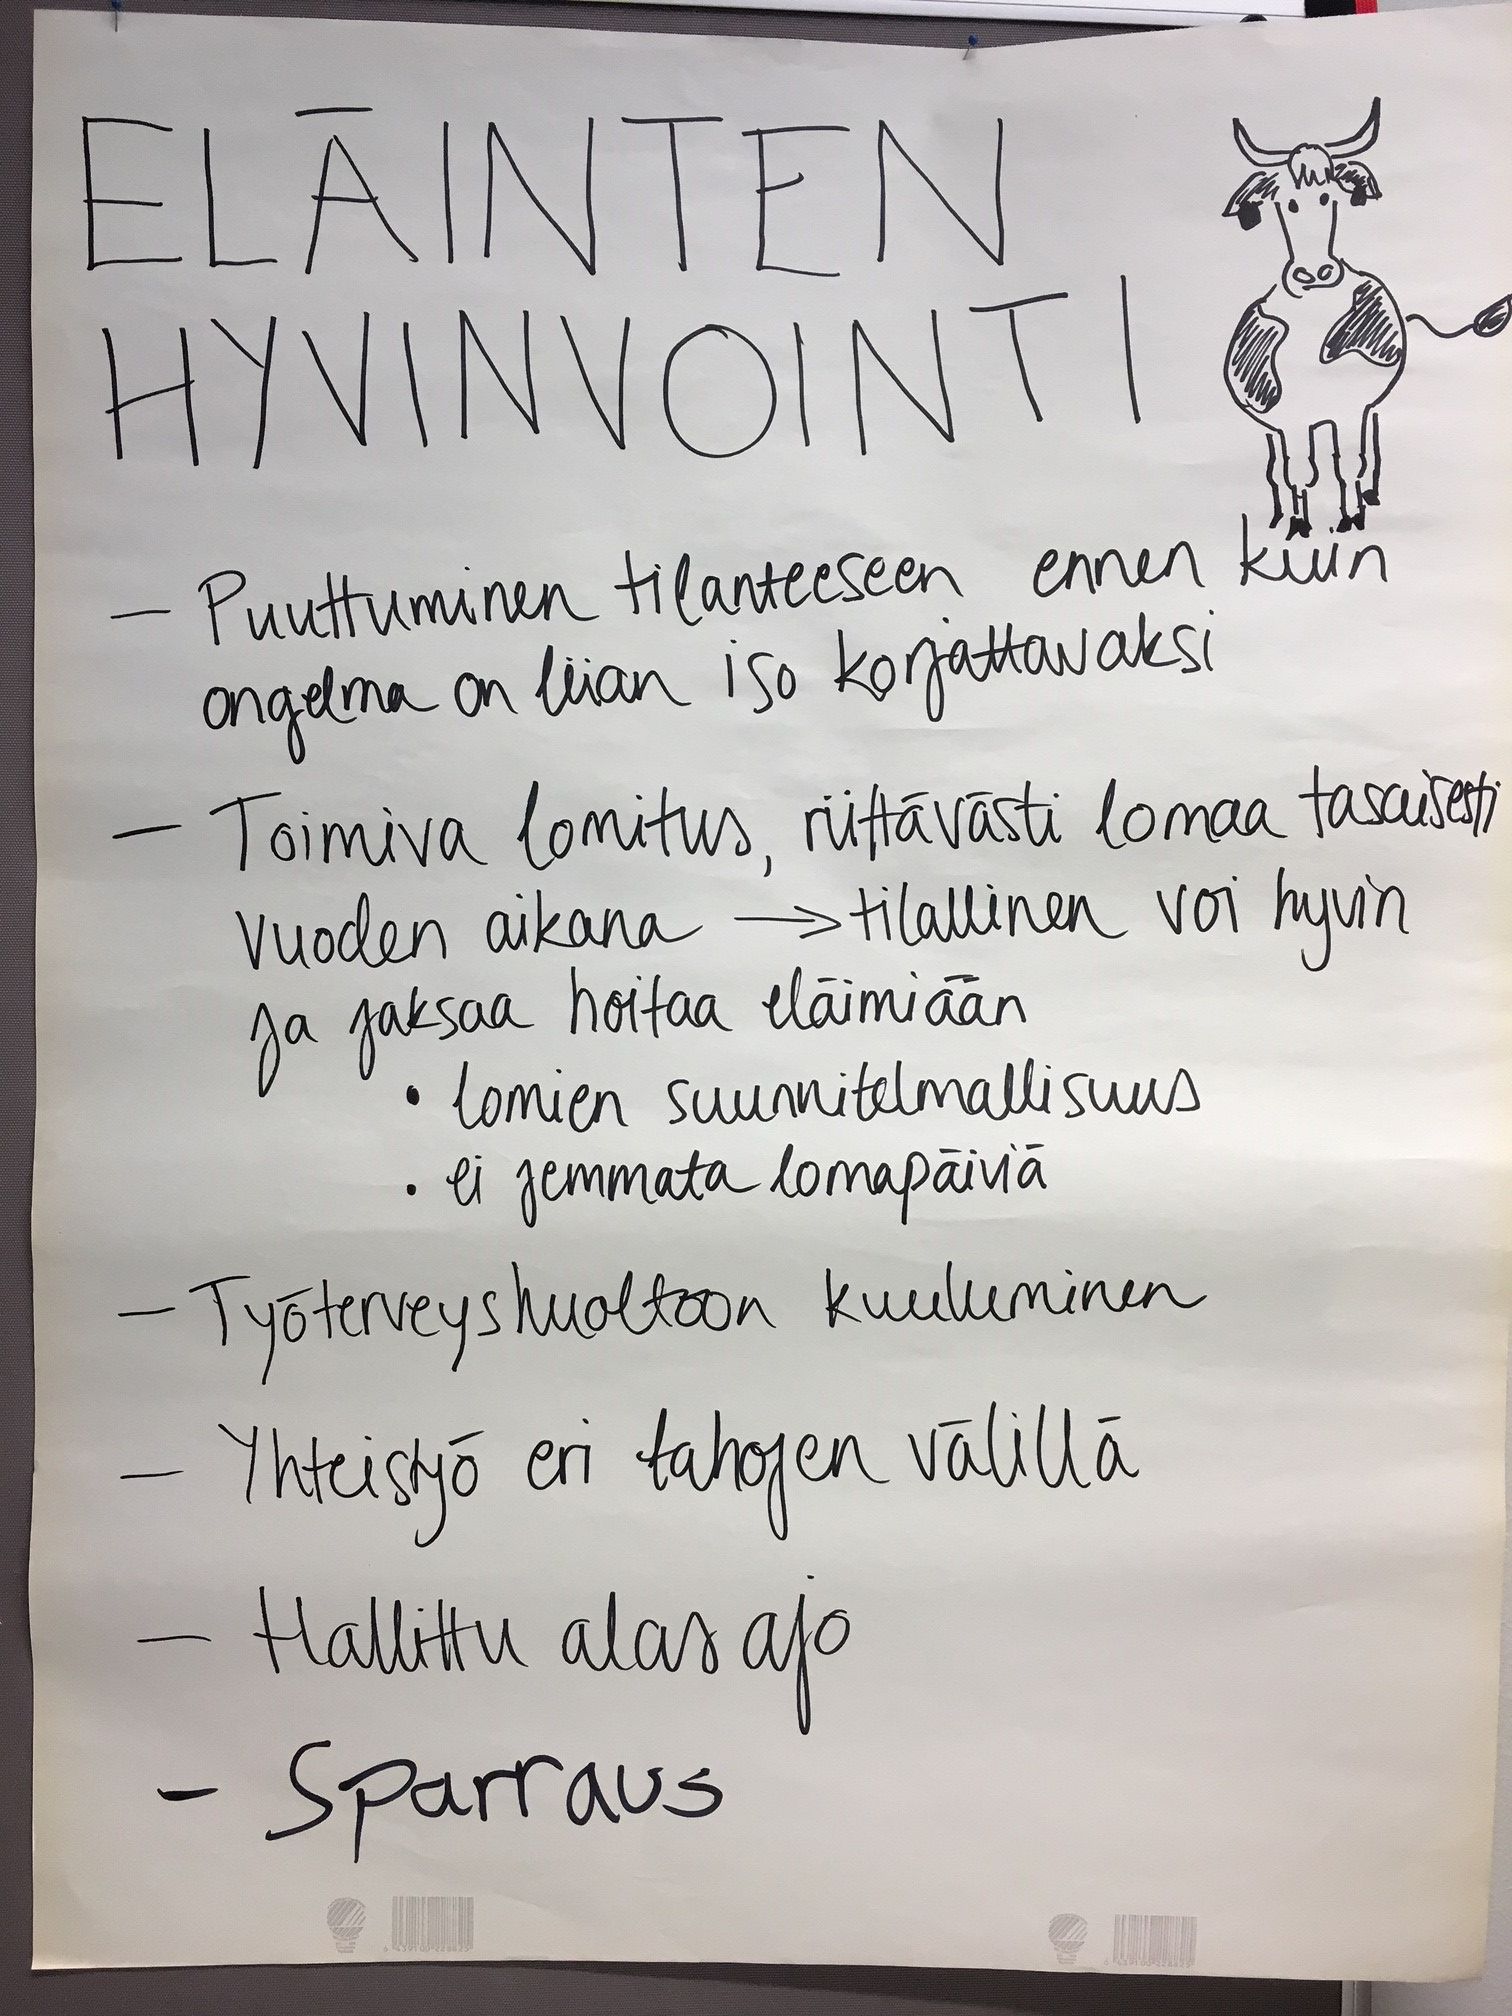 ELÄINTEN
HYVINVOINTI
- Puuttuminen tilanteeseen ennen kuin
ongelma on liian iso korjattavaksi
- Toimiva lomitus, riittävästi lomaa tasaisesti
vuoden aikana → tilallinen voi hyvin
ja jaksaa hoitaa eläimiään
• lomien suunnitelmallisuus
• ei jemmata lomapäiviä
- Työterveyshuoltoon kuuluminen
- Yhteistyö eri tahojen välillä
- Hallittu alasajo
- Sparraus